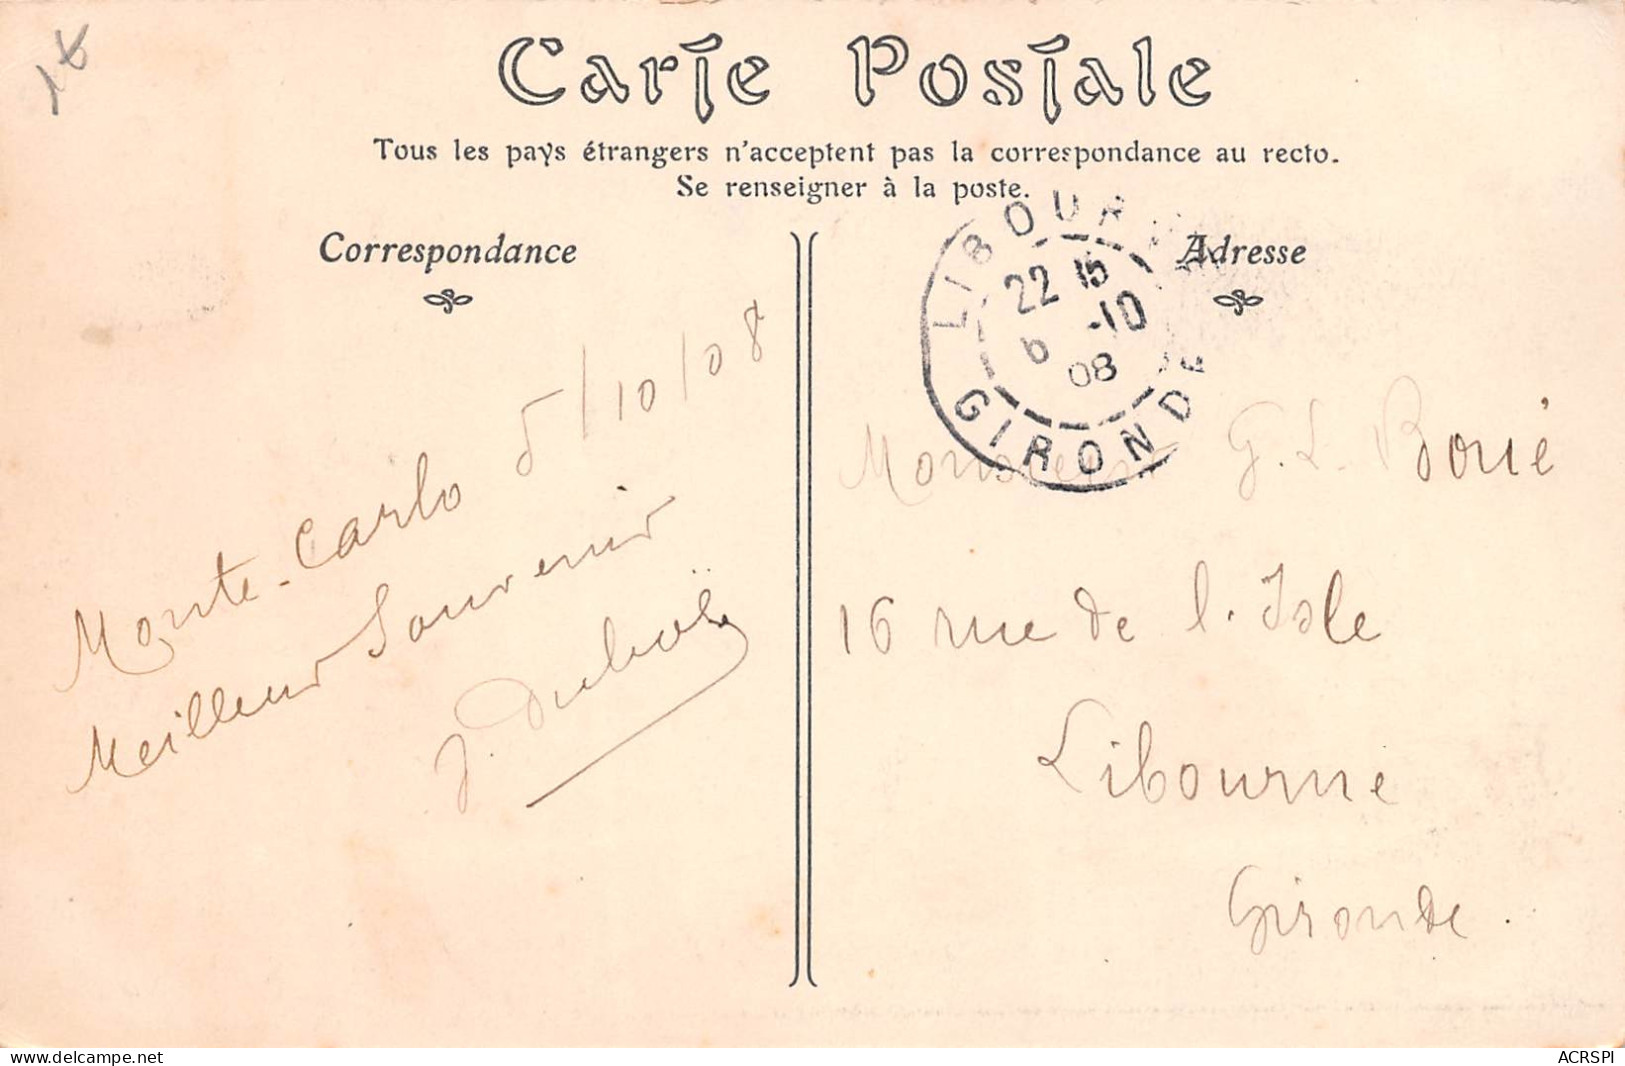 Carte Postale
Tous les pays étrangers n'acceptent pas la correspondance au recto.
Se renseigner à la poste.
Correspondance
Monte-Carlo 5/10/08
Meilleur Souvenir
J.
Adresse
LIBOURNE
22 15
6 -10
08
GIRONDE
Monsieur G. L. Bouié
16 rue de l'Isle
Libourne
Gironde.
www.delcampe.net
ACRSPI